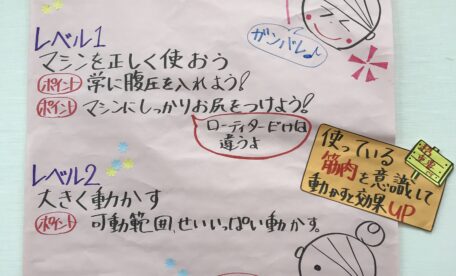 レベル1
ガンバレ♪
マシンを正しく使おう
ポイント 学に腹圧を入れよう!
ポイント マシンにしっかりお尻をつけよう!
ローティターだけは
違うよ
使っている
筋肉を意識して
動かすと効果UP
レベル2
大きく動かす
ポイント 可動範囲、せいいっぱい動かす。